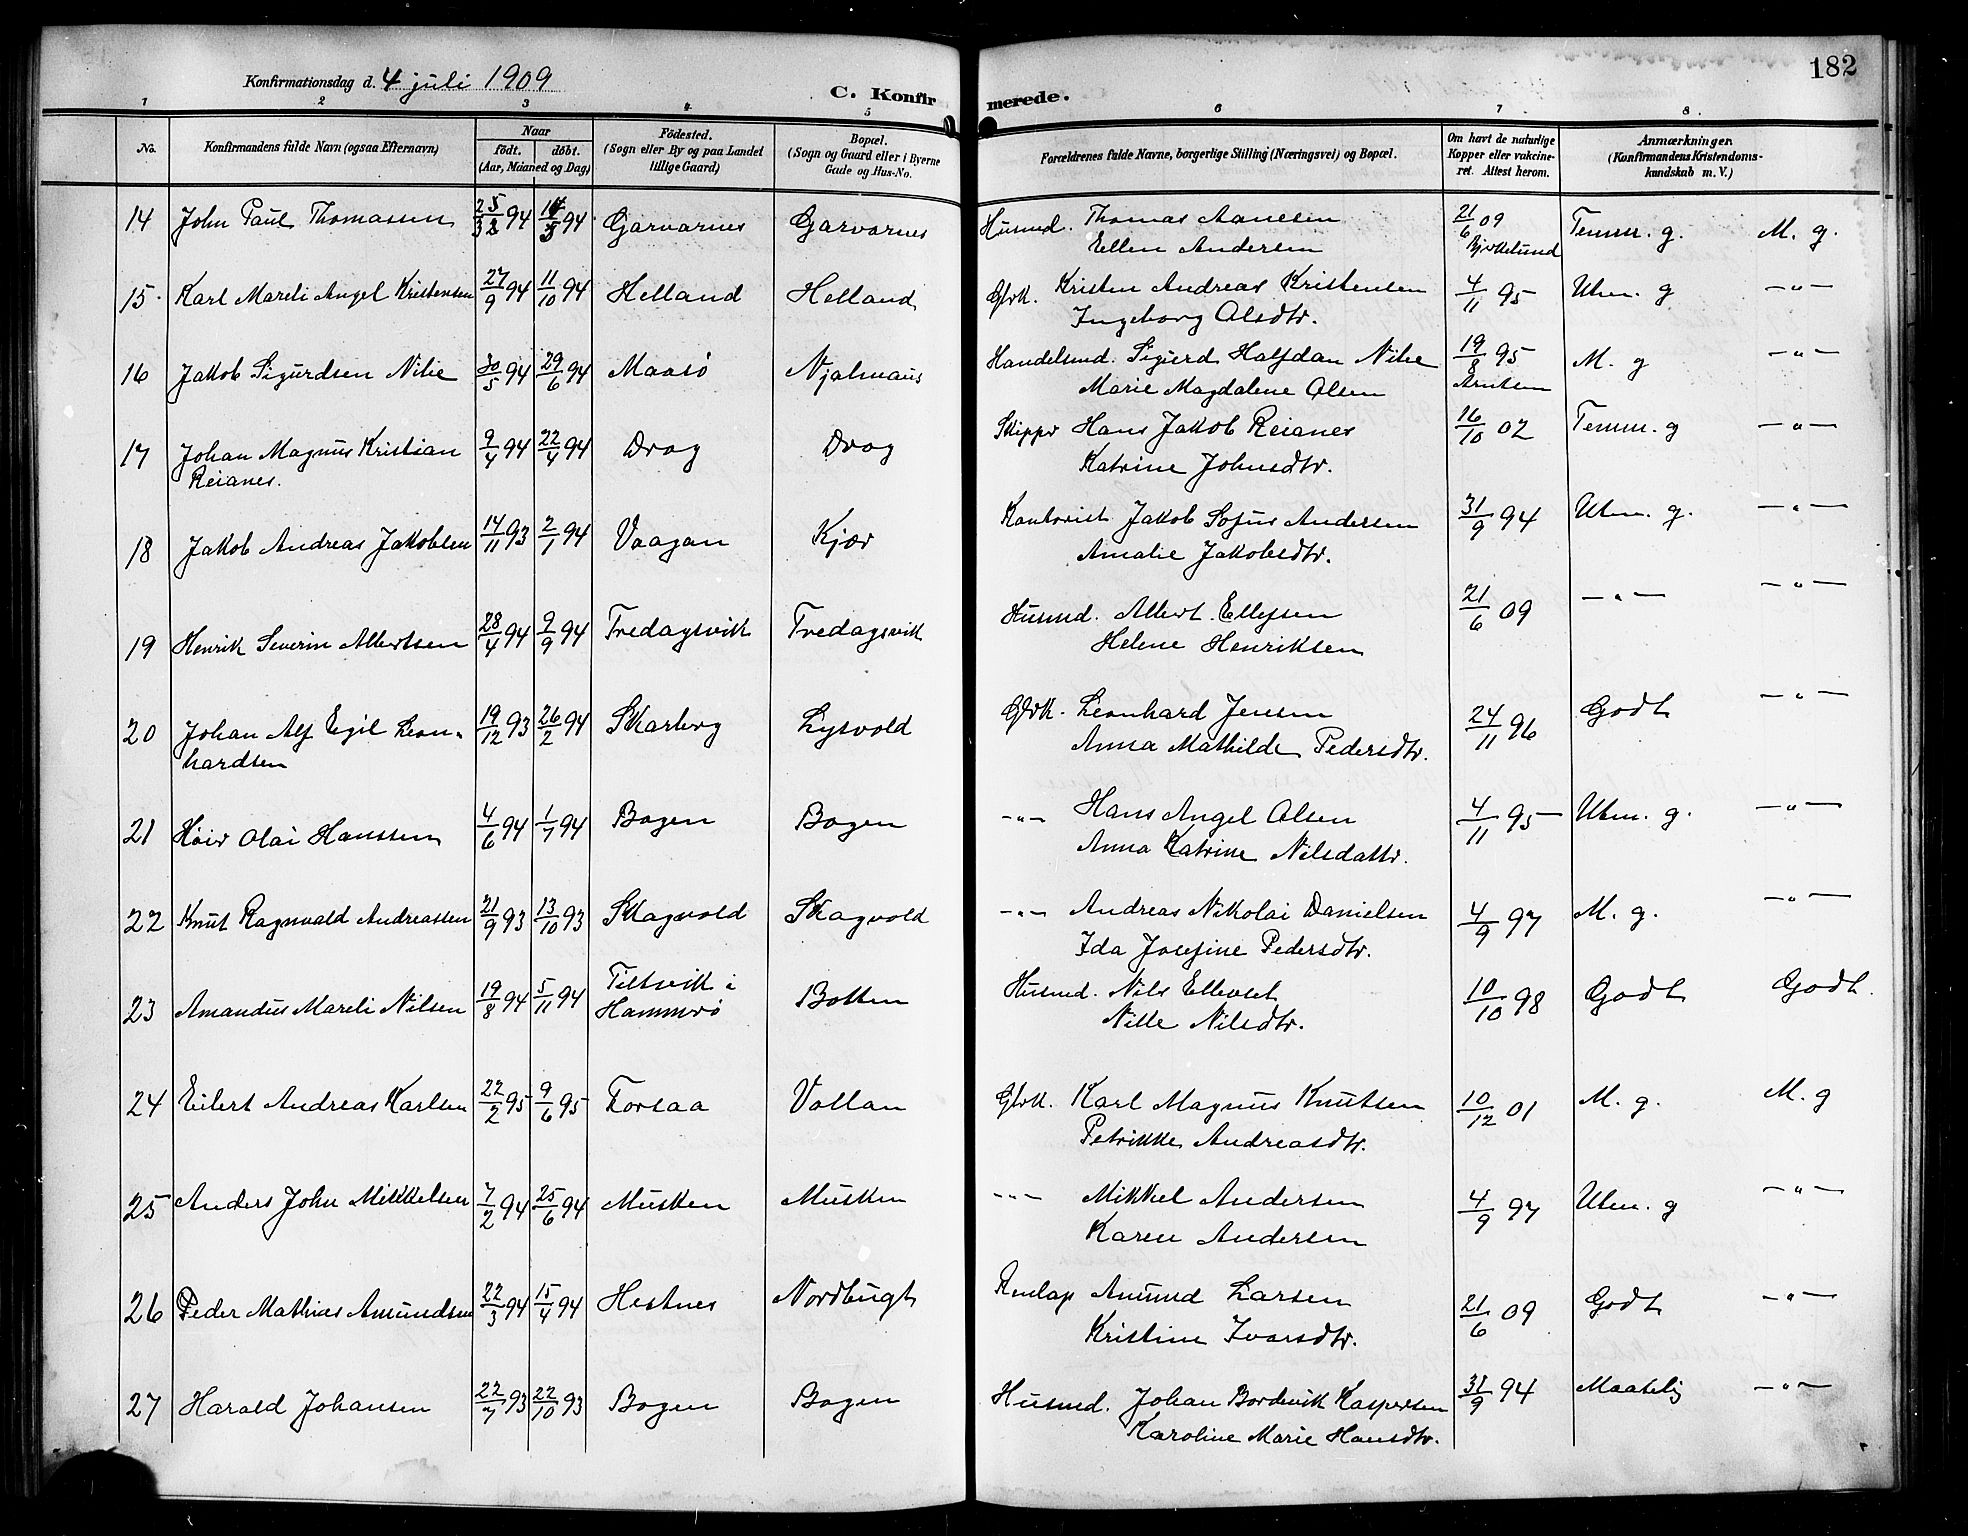 182
Konfirmationsdag d. 4 juli 1909
C. Konfirmerede.
1 2 3 4 5 6 7 8
No. Konfirmandens fulde Navn (ogsaa Efternavn) Naar født. døbt. (Aar, Maaned og Dag) Födested. (Sogn eller By og paa Landet tillige Gaard) Bopæl. (Sogn og Gaard eller i Byerne Gade og Hus-No. Forældrenes fulde Navne, borgerlige Stilling (Næringsvei) og Bopæl. Om havt de naturlige Kopper eller vakcineret. Attest herom. Anmærkninger. (Konfirmandens Kristendomskundskab m. V.)
14 John Paul Thomassen 94 94 Gjarvarnes Garvarnes Husmd. Thomas Aanesen 21/6 09 Temm. g. M. g.
Ellen Andersen Bjokelund
15. Karl Mareli Angel Kristensen 27/9 94 11/10 94 Helland Helland Gbk. Kristen Andreas Kristensen 4/11 95 Utm. g -"-
Ingeborg Olsdtr.
16 Jakob Sigurdsen Nilie 30/5 94 29/6 94 Maasö Njalmaus Handelsmd. Sigurd Halfdan Nilie 19/8 95 M. g -"-
Marie Magdalene Olsen Arntsen
17 Johan Magnus Kristian 9/4 94 22/4 94 Drag Drag Skippr Hans Jakob Reianes 16/10 02 Temm. g -"-
Reianes. Katrine Johnsdtr.
18 Jakob Andreas Jakobsen 14/11 93 2/1 94 Vaagan Kjær Kontorist Jakob Sofus Andersen 31/9 94 Utm. g. -"-
Amalie Jakobsdtr.
19 Henrik Severin Albertsen 28/4 94 9/9 94 Tredagsvik Tredagsvik Husmd. Albert Ellefsen 21/6 09 -"- -"-
Helene Henriksen
20 Johan Alf Egil Leon- 19/12 93 26/2 94 Skarberg Lysvold Gbk. Leonhard Jensen 24/11 96 Godt -"-
hardsen Anna Mathilde Pedersdtr.
21 Höir Olai Hanssen 4/6 94 1/7 94 Bogen Bogen -"- Hans Angel Olsen 4/11 95 Utm. g. -"-
Anna Katrine Nilsdattr.
22 Knut Ragnvald Andreassen 21/9 93 13/10 93 Skagvold Skagvold -"- Andreas Nikolai Danielsen 4/9 97 M. g. -"-
Ida Josefine Pedersdtr.
23 Amandus Mareli Nilsen 19/8 94 5/11 94 Tiltvik i Botten Husmd. Nils Ellevset 10/10 98 Godt Godt.
Hammerö Nille Nilsdtr.
24 Eilert Andreas Karlsen 22/2 95 9/6 95 Forsaa Vollan Gbk. Karl Magnus Knutsen 10/12 01 M. g. M. g
Petrikke Andreasdtr.
25 Anders John Mikkelsen 7/2 94 25/6 94 Musken Musken -"- Mikkel Andersen 4/9 97 Utm. g -"-
Karen Andersen
26 Peder Mathias Amundsen 22/3 94 15/4 94 Hestnes Nordbugt Renlap Amund Larsen 21/6 09 Godt -"-
Kristine Ivarsdtr.
27 Harald Johansen 22/7 93 22/10 93 Bogen Bogen Husmd. Johan Bordevik Kaspersen 31/9 94 Maatelig -"-
Karoline Marie Hansdtr.